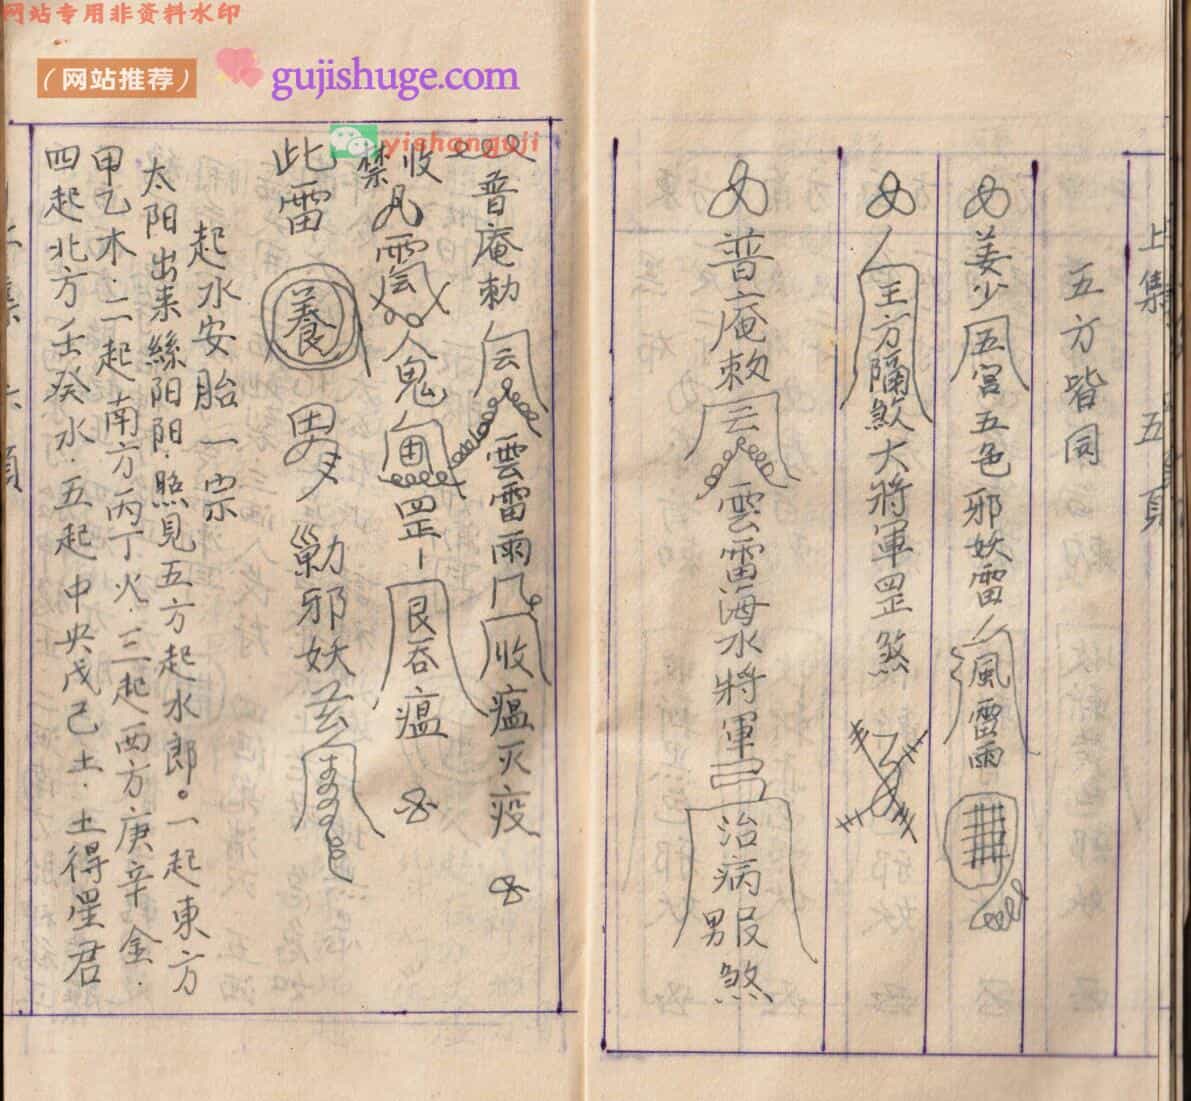 网站专用非资料水印
（网站推荐）
gujishuge.com
yishanguji
上集 五頁
五方皆同
姜少五宫五色邪妖雷人風雷雨
人王方隔煞大將軍罡煞
普庵敕云雲雷海水將軍弓治病男服煞
普庵勅会雲雷雨收瘟灭疫
收禁雲人鬼罡艮吞瘟
此雷養男巢勅邪妖
起水安胎一宗
太阳出来絲阳阳·照見五方起水郎。一起東方
甲乙木·二起南方丙丁火·三起西方庚辛金·
四起北方壬癸水·五起中央戊己土·土得星君